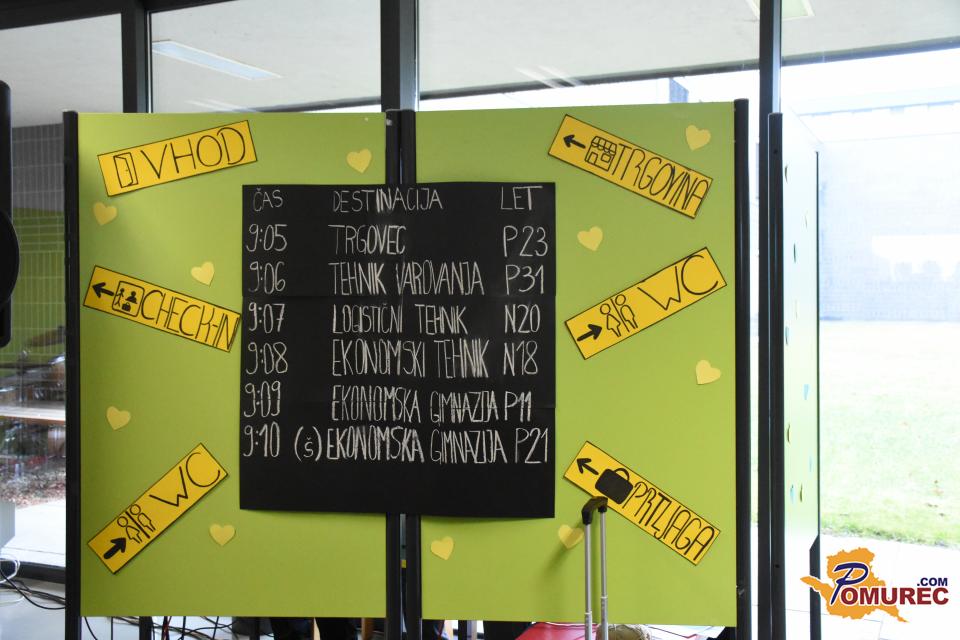 VHOD
CHECK-IN
WC
ČAS DESTINACIJA LET
9:05 TRGOVEC P23
9:06 TEHNIK VAROVANJA P31
9:07 LOGISTIČNI TEHNIK N20
9:08 EKONOMSKI TEHNIK N18
9:09 EKONOMSKA GIMNAZIJA P11
9:10 (Š) EKONOMSKA GIMNAZIJA P21
TRGOVINA
WC
PRTLJAGA
POMUREC.COM